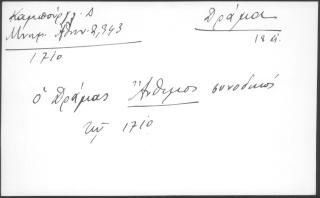 Καμπούρογλ. Δ
Μνημ. Αθην. 2,343
1710
Δράμα
18 αι.
ὁ Δράμας Ἄνθιμος συνοδικός
τῷ 1710